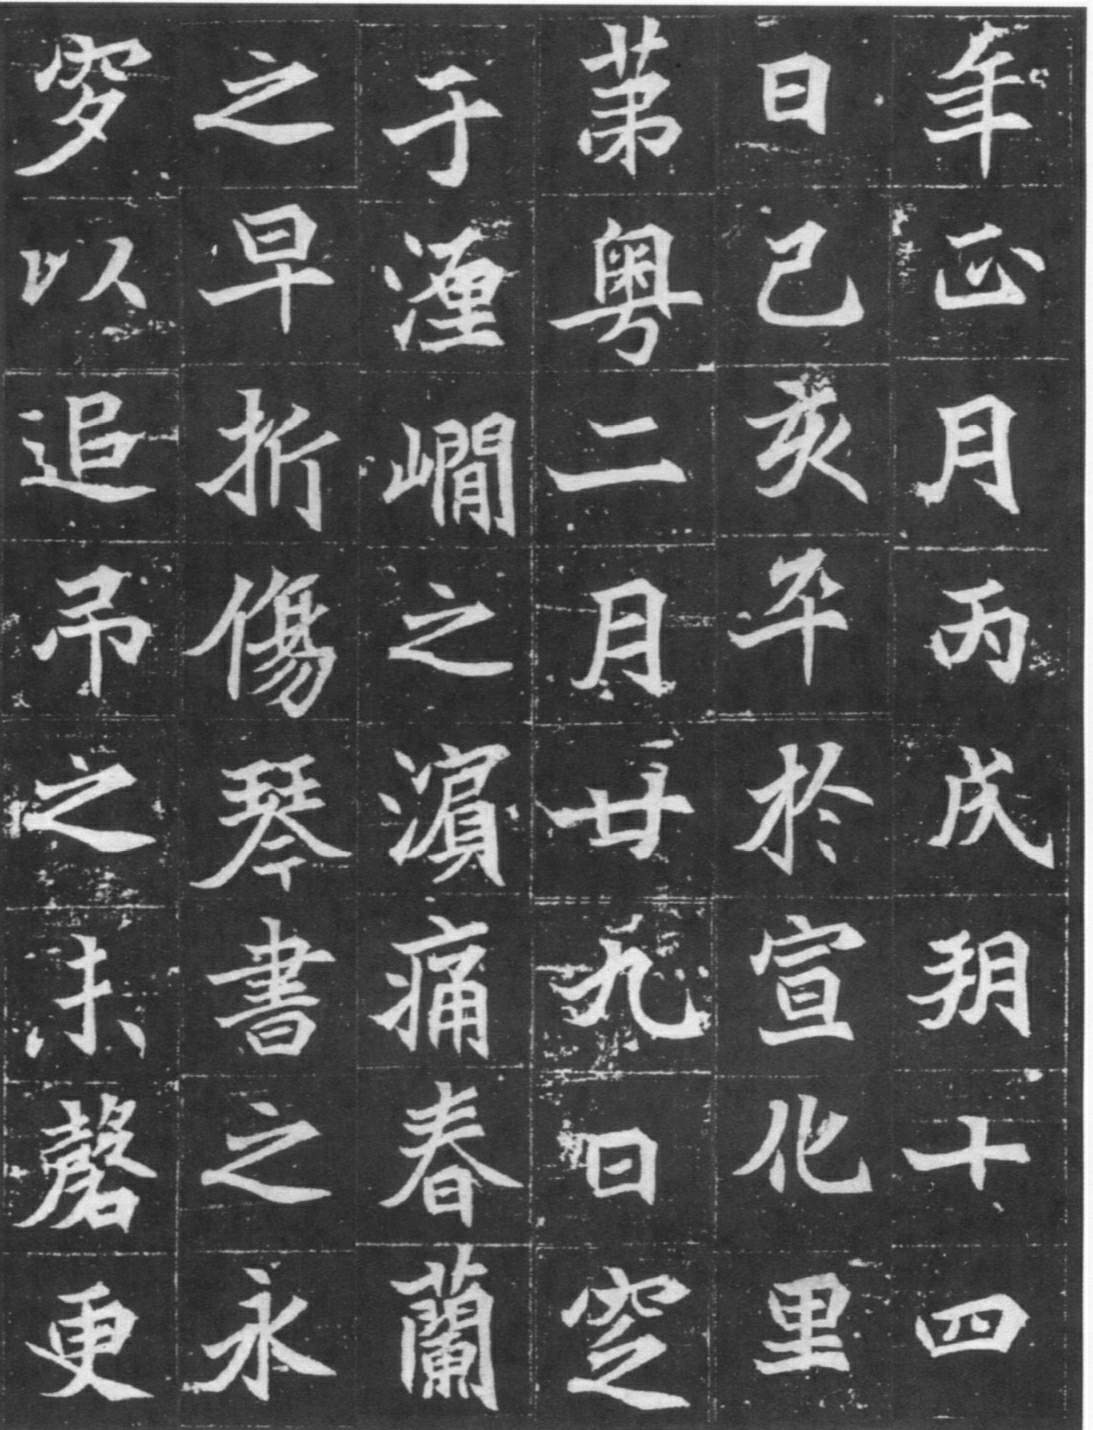 年正月丙戌朔十四
日己亥卒於宣化里
苐粤二月廿九日窆
于瀍澗之濵痛春蘭
之早折傷琴書之永
穸以追吊之未磬更